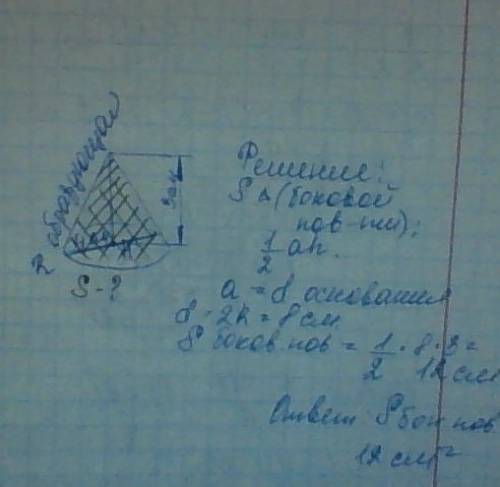 образующая
3см
R
S - ?
Решение:
S △ (боковой
пов-ти);
1/2 ah.
a = d основания
d = 2R = 8 см
S боков. пов = 1/2 · 8 · 3 =
12 см
Ответ S бок пов
12 см²